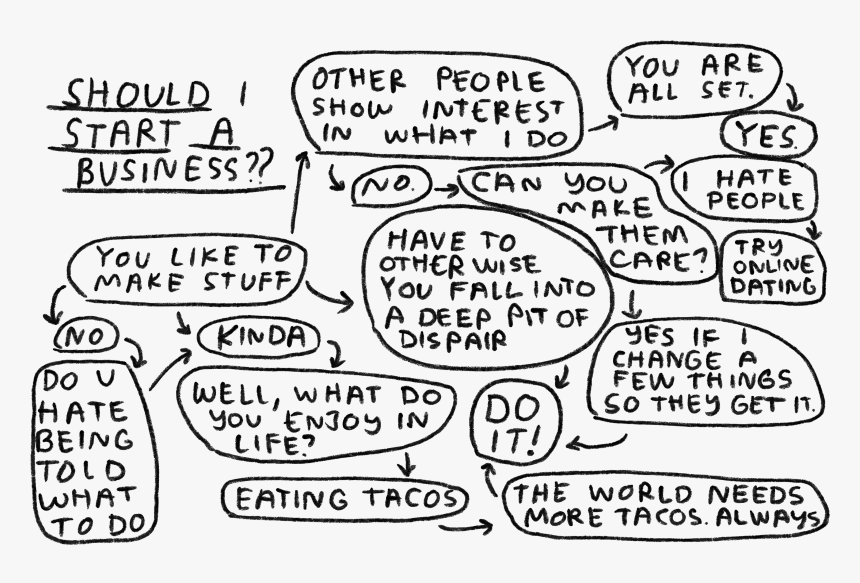 SHOULD I
START A
BUSINESS??
OTHER PEOPLE
SHOW INTEREST
IN WHAT I DO
YOU ARE
ALL SET.
YES.
NO.
CAN YOU
MAKE
THEM
CARE?
I HATE
PEOPLE
TRY
ONLINE
DATING
YOU LIKE TO
MAKE STUFF
HAVE TO
OTHERWISE
YOU FALL INTO
A DEEP PIT OF
DISPAIR
NO
KINDA
YES IF I
CHANGE A
FEW THINGS
SO THEY GET IT.
DO U
HATE
BEING
TOLD
WHAT
TO DO
WELL, WHAT DO
YOU ENJOY IN
LIFE?
DO
IT!
EATING TACOS
THE WORLD NEEDS
MORE TACOS. ALWAYS